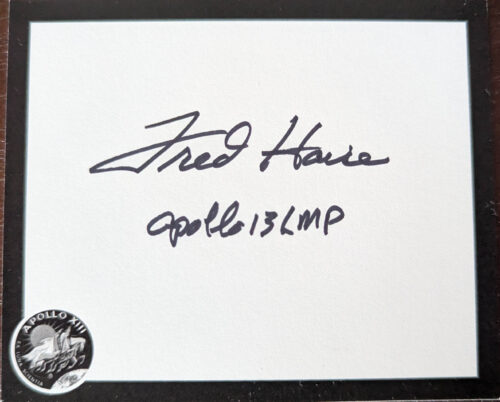 Fred Haise
Apollo 13 LMP
APOLLO XIII